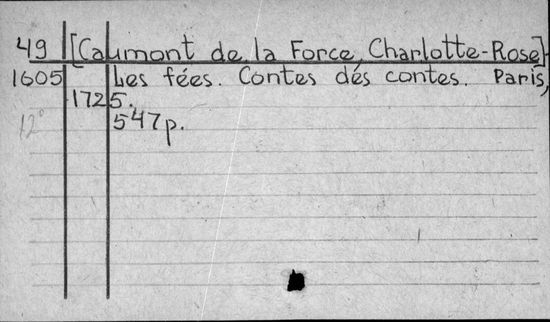 49 [Caumont de la Force, Charlotte-Rose]
1605 Les fées. Contes des contes. Paris,
1725.
12° 547 p.